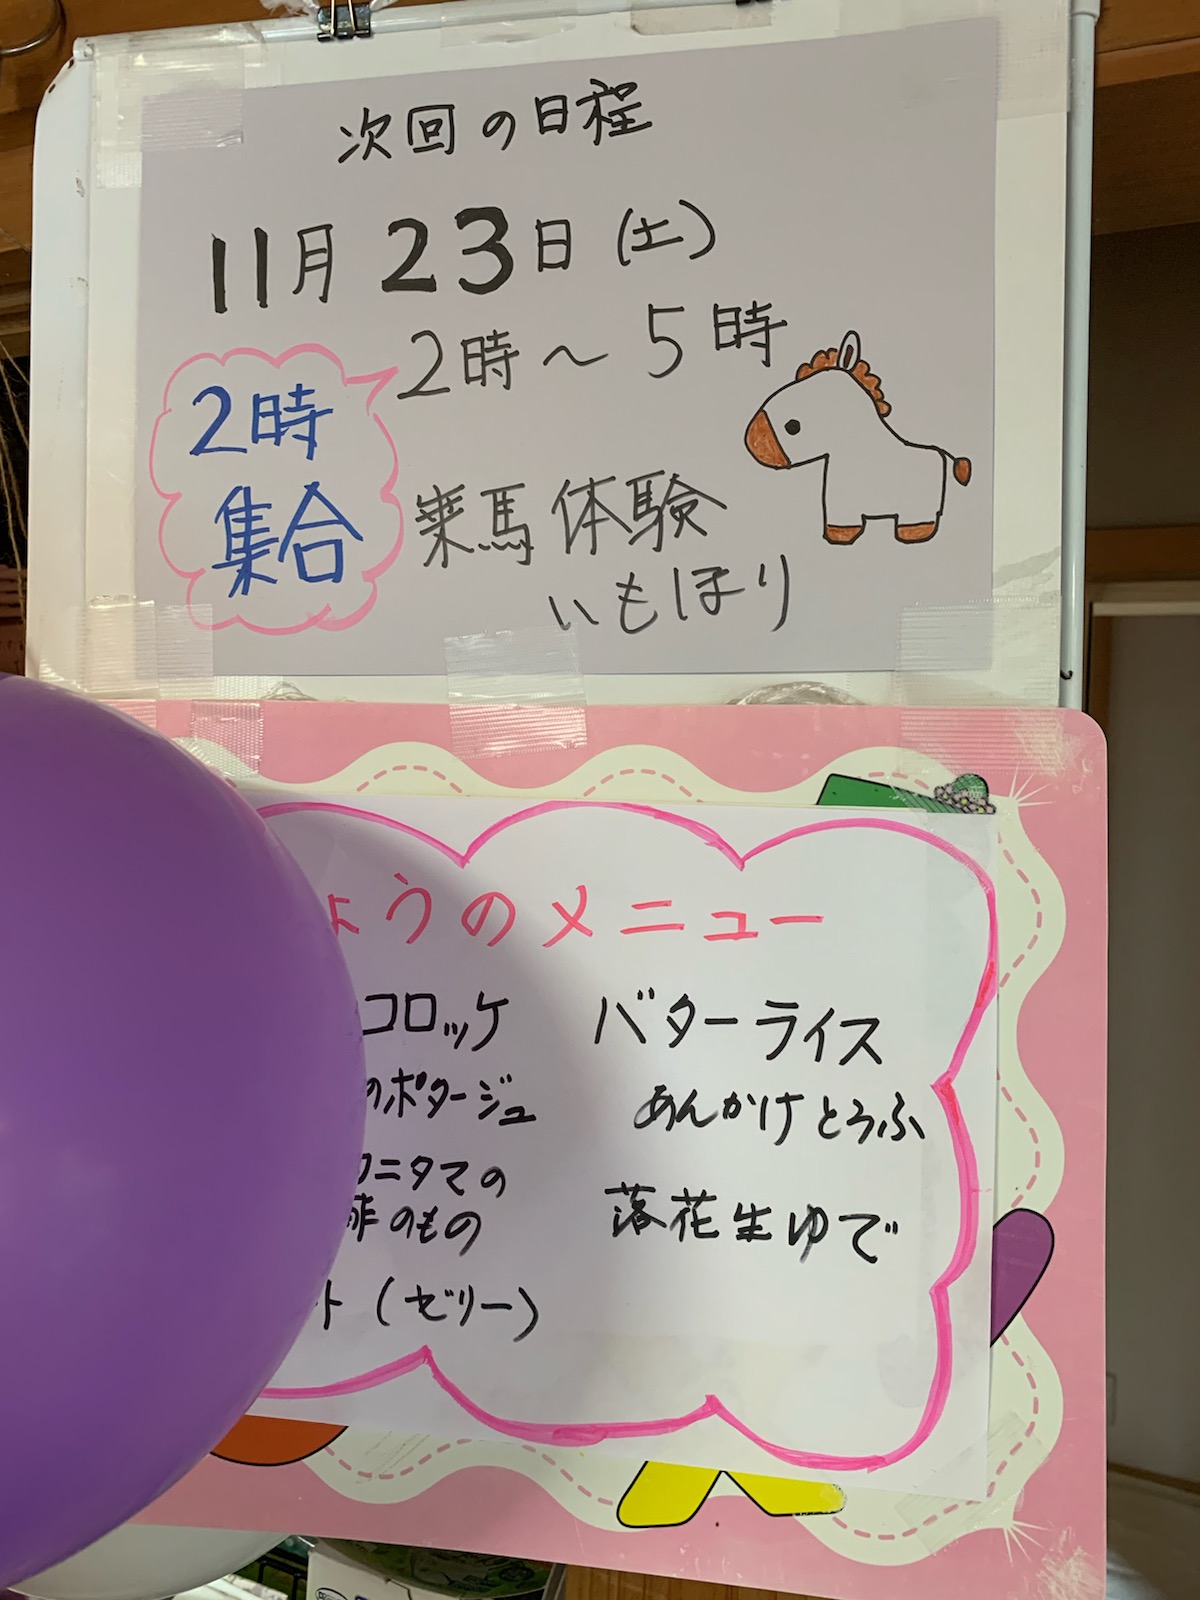 次回の日程
11月23日(土)
2時～5時
2時
集合
乗馬体験
いもほり
ょうのメニュー
コロッケ
のポタージュ
ワニタマの
のもの
ト(ゼリー)
バターライス
あんかけとうふ
落花生ゆで